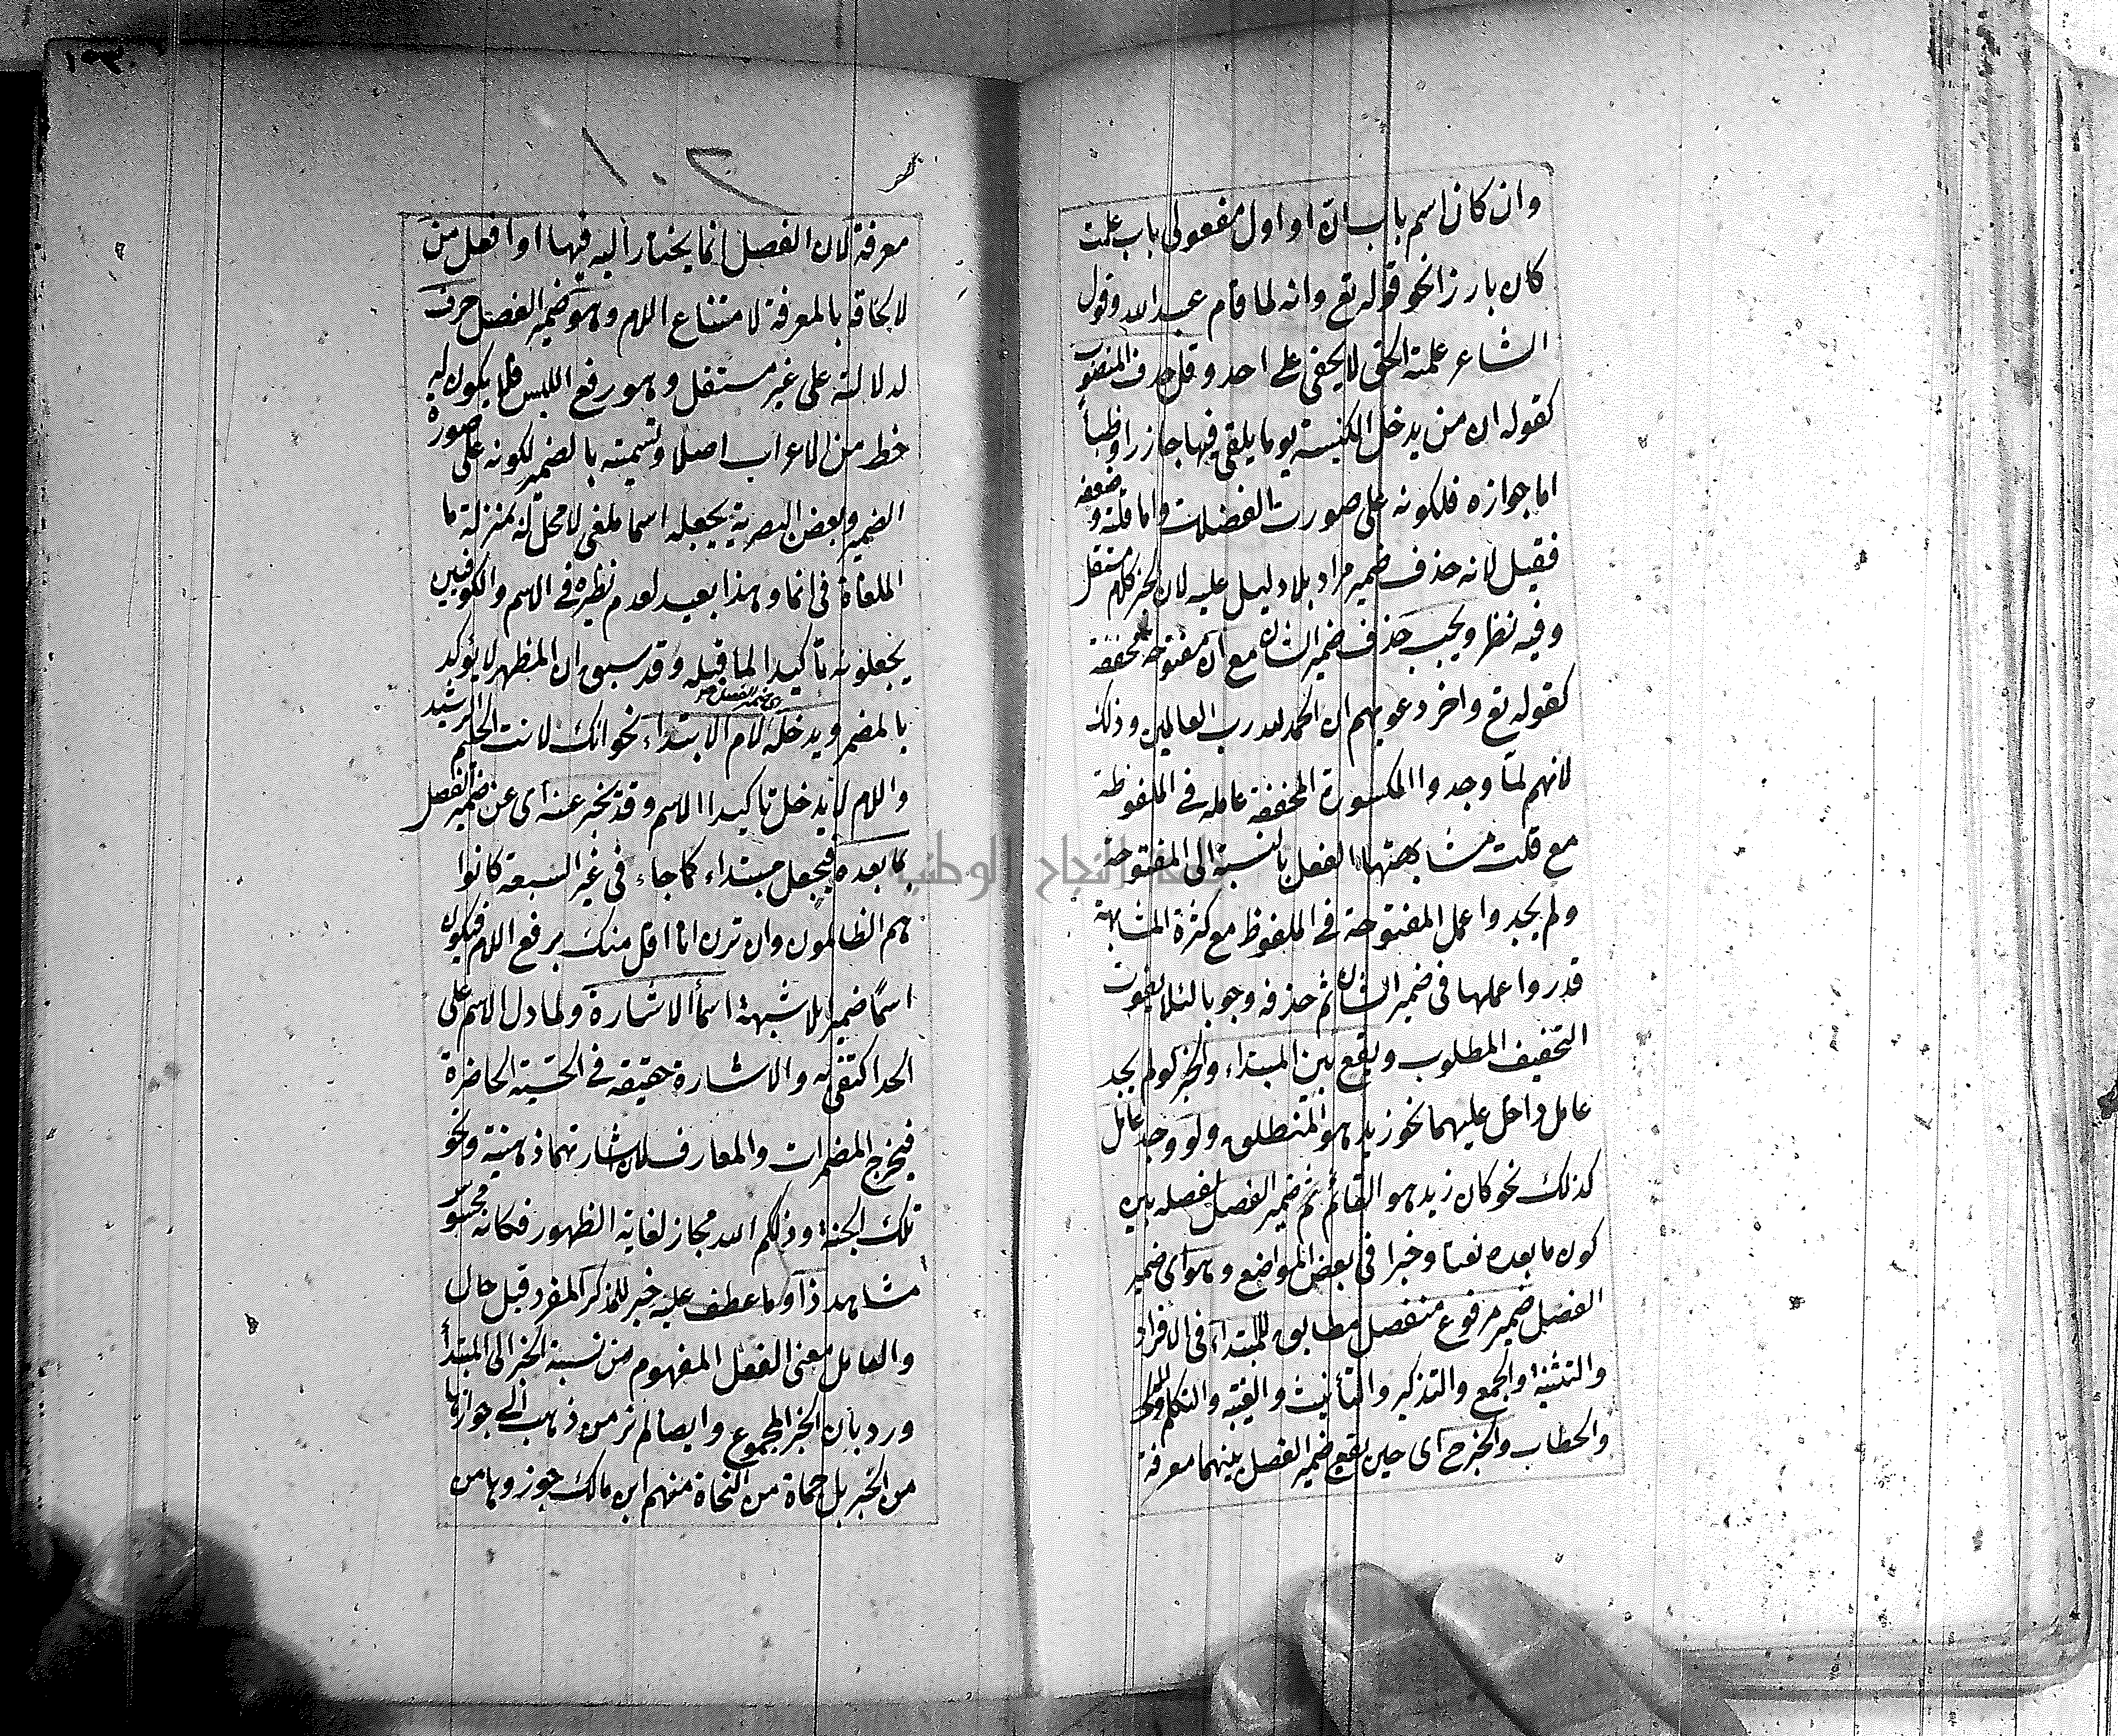 وان كان اسم باب ان او اول مفعولى باب علمت
كان بارزا نحو قوله تع وانه لما قام عبد الله وقول
الشاعر علمته الحق لا يخفى على احد وقل حذف المنصوب
كقوله ان من يدخل الكنيسة يوما يلقى فيها جازرا وظبأ
اما جوازه فلكونه على صورت الفضلات واما قلته وضعفه
فقيل لانه حذف ضمير مراد بلا دليل عليه لان الخبر كلام مستقل
وفيه نظر ويجب حذف ضمير الشان مع ان مفتوحة مخففة
كقوله تع واخر دعويهم ان الحمد لله رب العالمين وذلك
لانهم لما وجدوا المكسورة المخففة عاملة فى الملفوظة
مع قلت مشابهتها الفعل بالنسبة الى المفتوحة
ولم يجدوا عمل المفتوحة فى الملفوظ مع كثرة المشابهة
قدروا عملها فى ضمير الشان ثم حذفه وجوبا لئلا يفوت
التخفيف المطلوب ويقع بين المبتداء والخبر لو لم يجد
عامل داخل عليهما نحو زيد هو المنطلق ولو وجد عامل
كذلك نحو كان زيد هو القائم ثم ضمير الفصل لفصله بين
كون ما بعده نعتا وخبرا فى بعض المواضع وهو اى ضمير
الفصل ضمير مرفوع منفصل مطابق للمبتداء فى الافراد
والتثنية والجمع والتذكير والتأنيث والغيبة والتكلم
والخطاب والخبر ح اى حين يقع ضمير الفصل بينهما معرفة
١٠٢
معرفة لان الفصل انما يختار اليه فيها او افعل من
لالحاقه بالمعرفة لامتناع اللام وهو ضمير الفصل حرف
لدلالته على غير مستقل وهو رفع اللبس فلا يكون له
خط من الاعراب اصلا وتسميته بالضمير لكونه على صورة
الضمير وبعض البصرية يجعله اسما ملغى لا محل له بمنزلة ما
الملغاة فى انما وهذا بعيد لعدم نظيره فى الاسم والكوفيين
يجعلونه تاكيدا لما قبله وقد سبق ان المظهر لا يؤكد
بالمضمر ويدخله لام الابتداء نحو انك لانت الحليم الرشيد
واللام لا يدخل تاكيدا الاسم وقد يخبر عنه اى عن ضمير الفصل
بما بعده فيجعل مبتداء كما جاء فى غير السبعة كانوا
هم الظالمون وان ترن انا اقل منك برفع اللام فيكون
اسمًا ضمير بلا شبهة اسمأ الاشارة ولما دل الاسم على
الحد اكتفى به والاشارة حقيقه فى الحسية الحاضرة
فيخرج المضمرات والمعارف لان اشارتهما ذهنية ونحو
تلك الجنة وذلكم الله مجاز لغاية الظهور فكانه محسوس
مشاهد ذا وما عطف عليه خبر للمذكر المفرد قبل حال
والعامل معنى الفعل المفهوم من نسبة الخبر الى المبتدأ
ورد بان الخبر المجموع وايضا لم نر من ذهب الى جوازها
من الخبر بل جماة من النحاة منهم ابن مالك جوزوها من